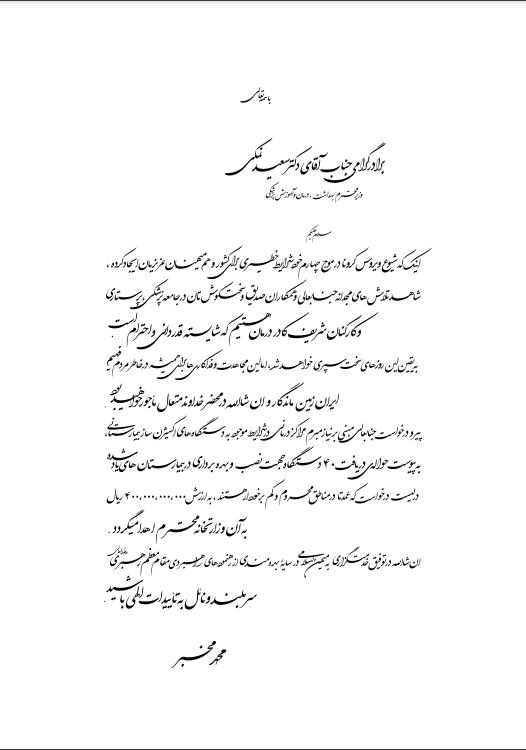 باسمه تعالی
برادر گرامی جناب آقای دکتر سعید نمکی
وزیر محترم بهداشت، درمان و آموزش پزشکی
سلام علیکم
اینک که شیوع ویروس کرونا در موج چهارم خود شرایط خطیری برای کشور و هم میهنان عزیزمان ایجاد کرده،
شاهد تلاش های مجدانه جنابعالی و همکاران صدیق و سخت کوش تان در جامعه پزشکی، پرستاری
و کارکنان شریف کادر درمان هستیم که شایسته قدردانی و احترام است.
به یقین این روزهای سخت سپری خواهد شد، اما این مجاهدت و فداکاری ها برای همیشه در خاطر مردم فهیم
ایران زمین ماندگار و ان شاالله در محضر خداوند متعال مأجور خواهید بود.
پیرو درخواست جنابعالی مبنی بر نیاز مبرم مراکز درمانی در شرایط موجود به دستگاه های اکسیژن ساز بیمارستانی،
به پیوست حواله ی دریافت ۴۰ دستگاه جهت نصب و بهره برداری در بیمارستان های یاد شده
در لیست درخواست که عمدتا در مناطق محروم و کم برخوردار هستند، به ارزش ۴۰۰،۰۰۰،۰۰۰،۰۰۰ ریال
به آن وزارتخانه محترم اهدا میگردد.
ان شاالله در توفیق خدمتگزاری به میهن اسلامی در سایۀ بهره مندی از رهنمودهای راهبردی مقام معظم رهبری
سربلند و نائل به تاییدات الهی باشید.
محمد مخبر